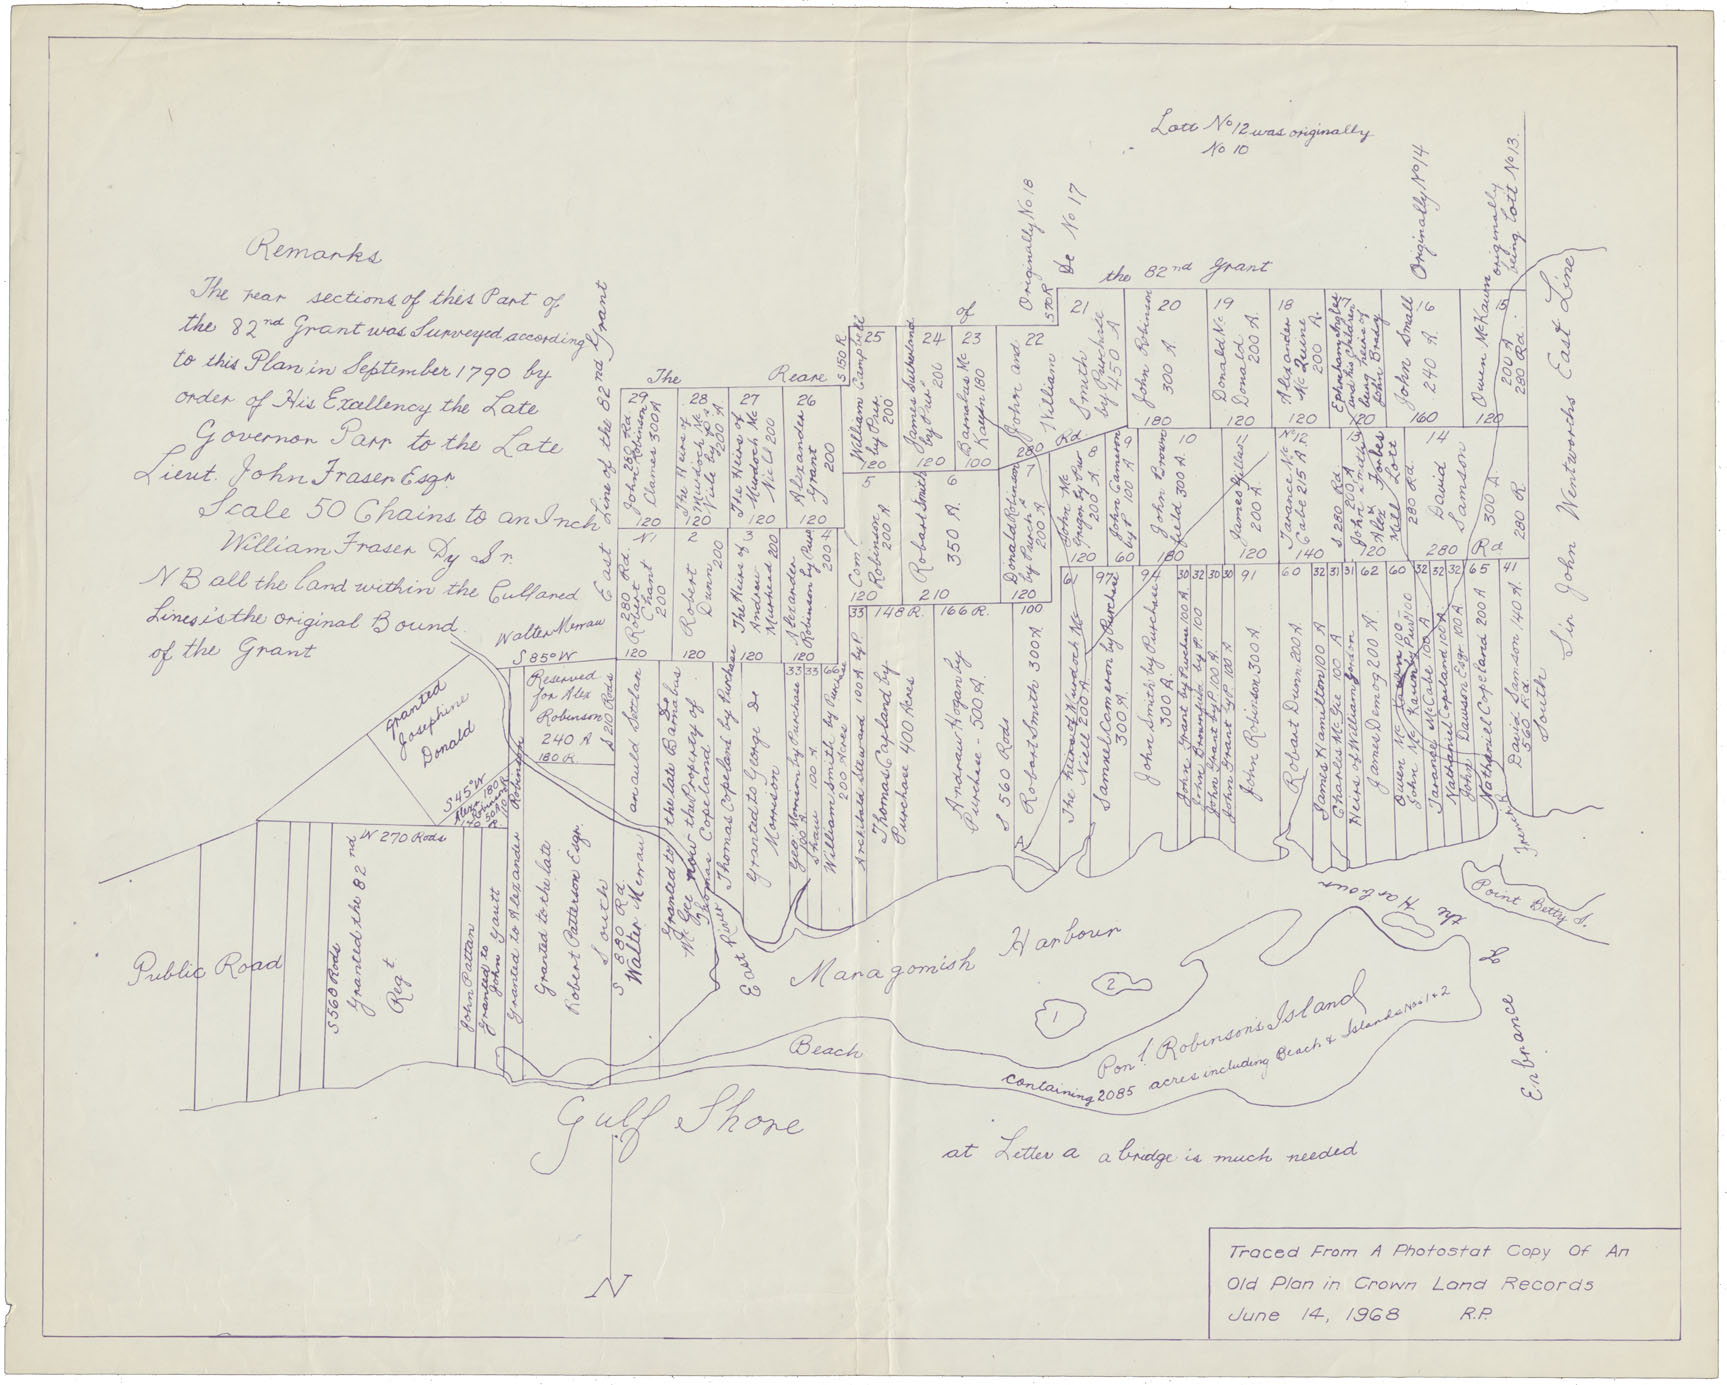 Lott No 12 was originally
No 10
Remarks
The rear sections of this Part of
the 82nd Grant was Surveyed according
to this Plan in September 1790 by
order of His Excellency the Late
Governor Parr to the Late
Lieut. John Fraser Esqr
Scale 50 Chains to an Inch
William Fraser Dy Sr.
NB all the land within the Cullared
Lines is the original Bound
of the Grant
East Line of the 82nd Grant
The Reare of the 82nd Grant
S 150 R
S 70 R
Originally No 18
De No 17
Originally No 14
originally
being Lott No 13.
Sir John Wentworths East Line
29
John Robinson
Clames 300 A
280 Rd.
120
28
The Heirs of
Murdock Mc
200 A
120
27
The Heirs of
Murdoch Mc
Nield 200
120
26
Alexander
Grant
200
120
25
William Campbell
by Pur.
200
120
24
James Sutherland
by Pur
200
120
23
Barnabas Mc
180
100
22
John and
William
200
21
Smith
by Purchase
450 A
Rd
20
John Robinson
300 A
180
19
Donald Mc
Donald
200 A.
120
18
Alexander
Mc Quine
200 A.
120
17
Ephraham Ingles
and his children
being heirs of
John Brady
120
16
John Small
240 A.
160
15
Owen McKawn
200 A
280 Rd.
120
No 1
280 Rd.
Robert
Chant
200
120
2
Robert
Dunn
200
120
3
The Heirs of
Andrew
Muirhead 200
120
4
Alexander
Robinson by Purs
200
120
5
Com.
Robinson
200 A
120
6
Robart Smith
350 A.
210
7
Donald Robinson
by Purch's
200 A
120
8
John Mc
Gregor by Pur
200 A.
120
9
John Cameron
by P 100 A
60
10
John Brown
field 300 A.
180
11
James Gillies
200 A.
120
12
Tarance Mc
Cabe 215 A
140
S. 280 Rd
John Smith
200 A
Alex Forbes
Mill Lott
120
280 Rd.
14
David
Samson
300 A
280 Rd
280 R.
Walter Merraw
S 85° W
Reserved
for Alex
Robinson
240 A
180 R.
S 210 Rods
Granted
Josephine
Donald
S 45° W
Alex 180
Robinson
W 270 Rods
Public Road
S 560 Rods
Granted the 82nd
Regt
John Pattan
Granted to
John Gautt
Granted to Alexander Robinson
Granted to the late
Robert Patterson Esqr.
South
S 880 Rd.
Walter Merraw
an auld Settlar
Granted to the late Barnabus
Mc Gee now the Property of
Thomas Copeland
Thomas Copeland by Purchase
Granted to George De
Morrison
33
Geo. Morrison by Purchase
100 A
33
Shaw 100 A
66
William Smith by Purchase
200 Acres
33
Archibald Steward 100 A by P.
148 R.
Thomas Copland by
Purchase 400 Acres
166 R.
Andraw Hogan by
Purchase - 500 A.
S 560 Rods
100
Robart Smith 300 A
A
61
The heirs of Murdock Mc
Niell 200 A
97
Samuel Cameron by Purchase
300 A
94
John Smith by Purchase
300 A.
30
John Grant by Purchase 100 A.
32
John Brownfield by P. 100
30
John Grant by P 100 A.
30
John Grant by P 100 A
91
John Robinson 300 A
60
Robart Dunn 200 A.
32
James Hamilton 100 A
31
Charles Mc Gee 100 A
31
Heirs of William Jonson
62
James Demog 200 A.
60
Owen Mc Kawn 100
John Mc Kawn by Pur 100
32
Tarance McCabe 100 A
32
Nathaniel Copeland 100 A
32
John Dawson Esqr 100 A
65
Nathaniel Copeland 200 A
41
David Samson 140 A.
560 Rd.
South
French R.
East River
Maragomish Harbour
Entrance of the Harbour
Point Betty I.
1
2
Beach
Ponl Robinson's Island
containing 2085 acres including Beach & Islands Nos 1 & 2
Gulf Shore
at Letter a a bridge is much needed
N
Traced From A Photostat Copy Of An
Old Plan in Crown Land Records
June 14, 1968 R.P.